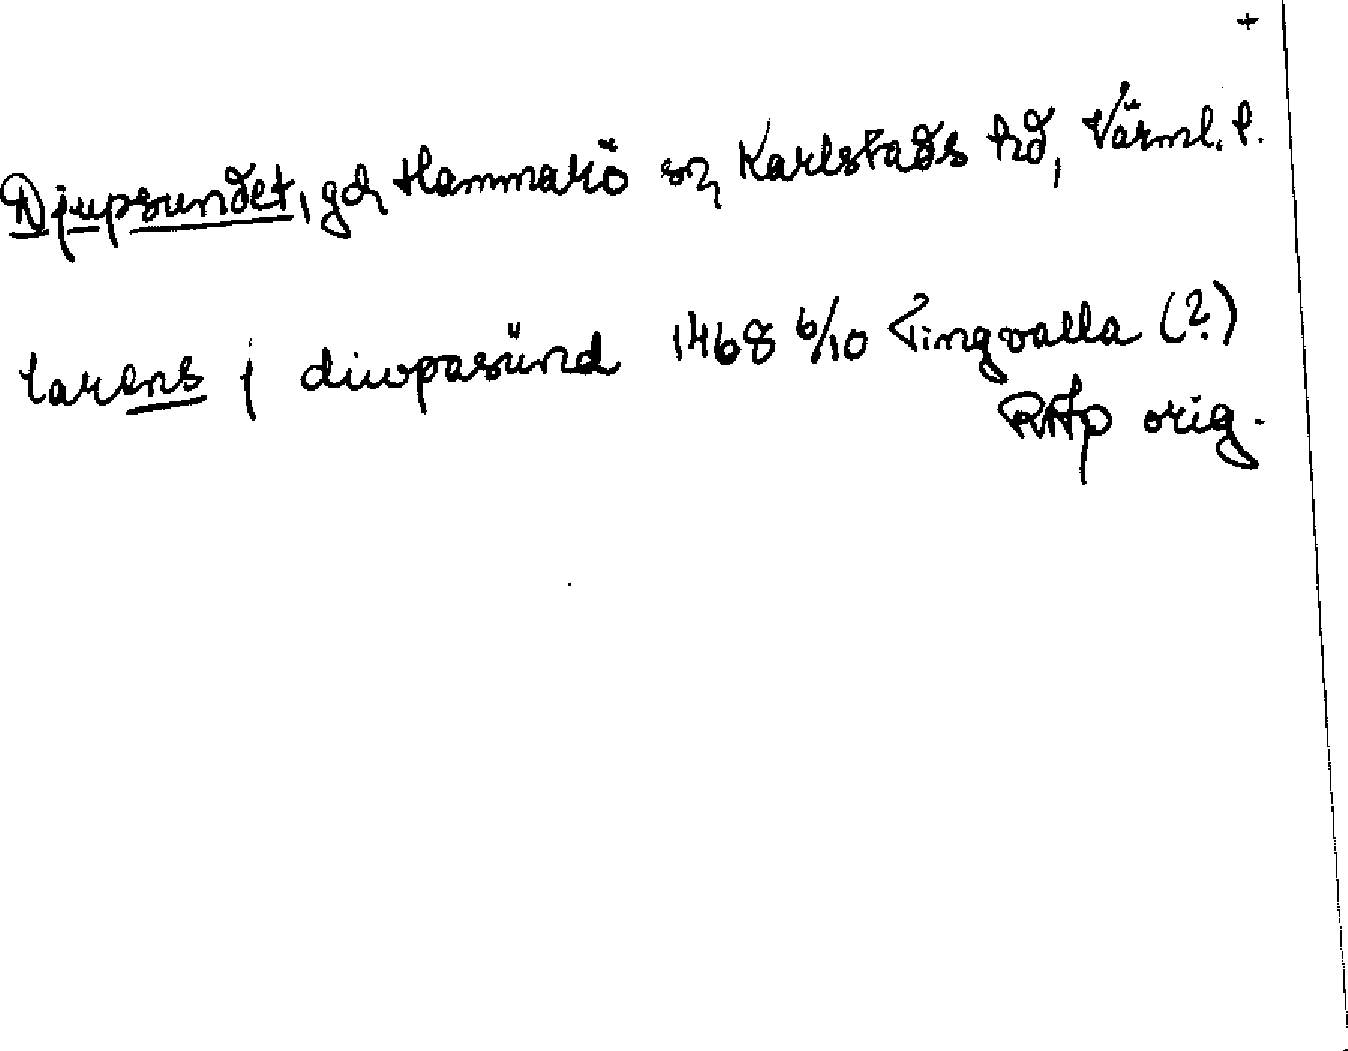 +
Djupsundet, gd, Hammarö sn, Karlstads hd, Värml. l.
larens j diwpasünd 1468 6/10 Tingvalla (?)
RAp orig.